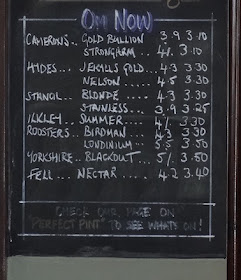 ON NOW
CAMERON'S.. GOLD BULLION 3.9 3.10
STRONGARM.. 4/. 3.10
HYDES... JEKYLLS GOLD... 4.3 3.30
NELSON ..... 4.5 3.30
STANCIL.. BLONDE..... 4.3 3.30
STAINLESS.. 3.9 3.25
ILKLEY.. SUMMER..... 4/. 3.30
ROOSTERS.. BIRDMAN.... 4.3 3.30
LONDINIUM... 5.5 3.50
YORKSHIRE.. BLACKOUT... 5/. 3.50
FELL... NECTAR...... 4.2 3.40
CHECK OUR PAGE ON
"PERFECT PINT" TO SEE WHATS ON!